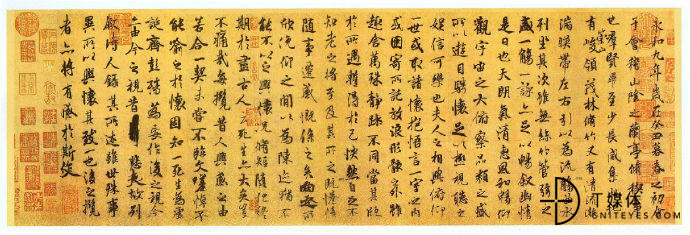 永和九年歲在癸丑暮春之初會
于會稽山陰之蘭亭脩稧事
也群賢畢至少長咸集此地
有崇山峻領茂林脩竹又有清流激
湍暎帶左右引以為流觴曲水
列坐其次雖無絲竹管弦之
盛一觴一詠亦足以暢敘幽情
是日也天朗氣清惠風和暢仰
觀宇宙之大俯察品類之盛
所以遊目騁懷足以極視聽之
娛信可樂也夫人之相與俯仰
一世或取諸懷抱悟言一室之內
或因寄所託放浪形骸之外雖
趣舍萬殊靜躁不同當其欣
於所遇蹔得於己怏然自足不
知老之將至及其所之既惓情
隨事遷感慨係之矣向之所
欣俛仰之閒以為陳迹猶不
能不以之興懷況脩短隨化終
期於盡古人云死生亦大矣豈
不痛哉每攬昔人興感之由
若合一契未嘗不臨文嗟悼不
能喻之於懷固知一死生為虛
誕齊彭殤為妄作後之視今
亦由今之視昔悲夫故列
敘時人錄其所述雖世殊事
異所以興懷其致一也後之攬
者亦將有感於斯文
媒体
NITEYES.COM